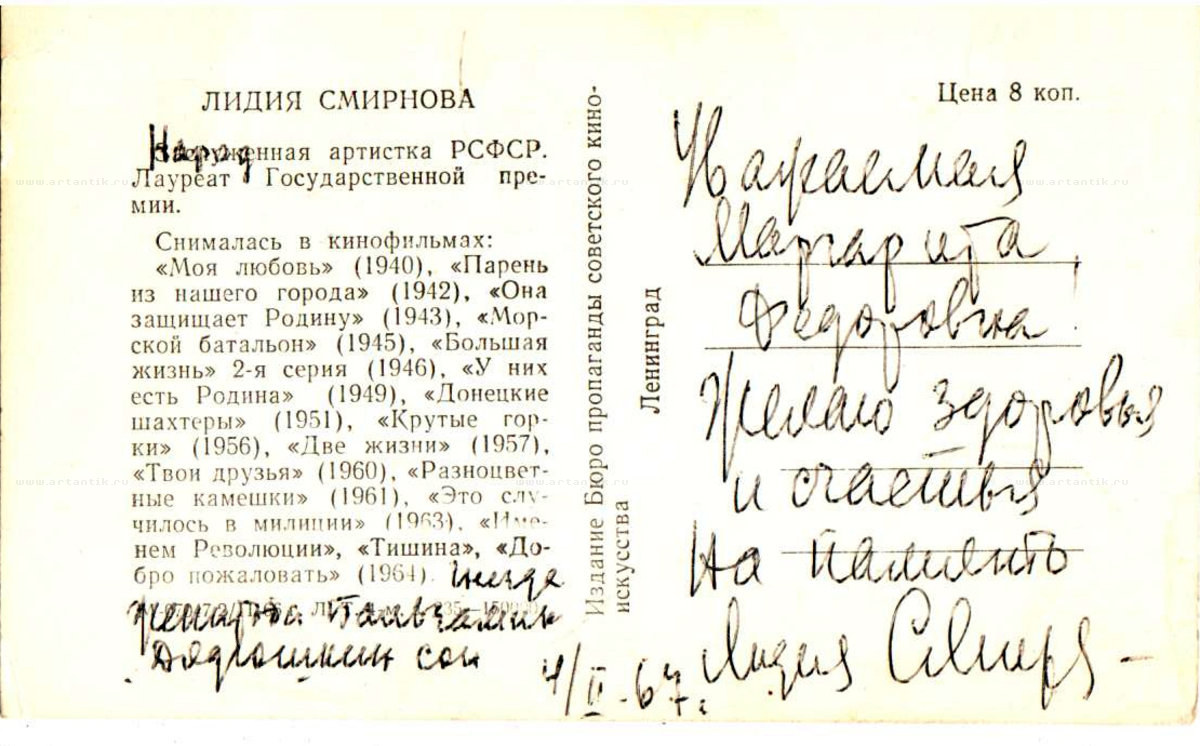 ЛИДИЯ СМИРНОВА
Народ
Заслуженная артистка РСФСР.
Лауреат Государственной пре-
мии.
Снималась в кинофильмах:
«Моя любовь» (1940), «Парень
из нашего города» (1942), «Она
защищает Родину» (1943), «Мор-
ской батальон» (1945), «Большая
жизнь» 2-я серия (1946), «У них
есть Родина» (1949), «Донецкие
шахтеры» (1951), «Крутые гор-
ки» (1956), «Две жизни» (1957),
«Твои друзья» (1960), «Разноцвет-
ные камешки» (1961), «Это слу-
чилось в милиции» (1963), «Име-
нем Революции», «Тишина», «До-
бро пожаловать» (1964).
Женитьба Бальзамин
Дядюшкин сон
4/II-67г.
Издание Бюро пропаганды советского кино-
искусства
Ленинград
Цена 8 коп.
Уважаемая
Маргарита
Федоровна!
Желаю здоровья
и счастья
На память
Лидия Смирн
www.artantik.ru
www.artantik.ru
www.artantik.ru
www.artantik.ru
www.artantik.ru
www.artantik.ru